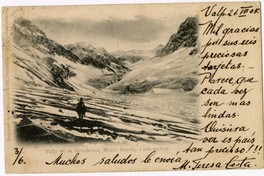 Valp. 26 III 08.
Mil gracias
por sus seis
preciosas
tarjetas.
Parece que
cada vez
son mas
lindas.
Quisiera
ver es pais
tan precioso!!!
3/16. Muchos saludos le envia
M. Teresa Costa.